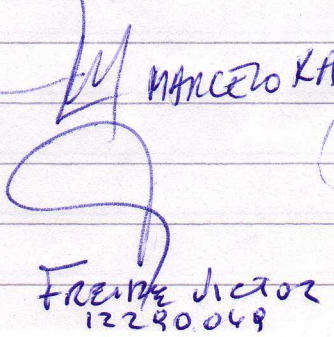 MARCELO KA
FREIRE VICTOR
12290049